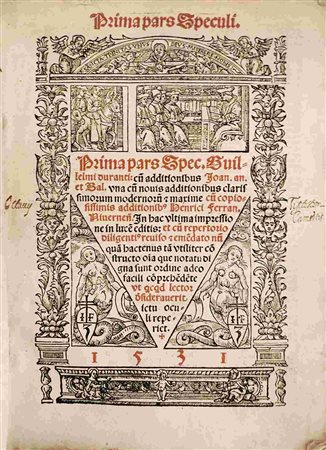 Prima pars Speculi.
Prima pars Spec. Guil-
lelmi duranti: cū additionibus Joan. an.
et Bal. vna cū nouis additionibus claris
simorum modernorū & maxime cū copio
sissimis additionibꝰ Henrici Ferran.
Niuerneñ. In hac vltima impressio
ne in lucē editis: et cū repertorio
diligenti reuiso & emēdato nū
quā hactenus tā vtiliter cō
structo oīa que notatu di
gna sunt ordine adeo
facili cōprehēdēte
vt
lector
ictu ocu
li repe-
riet.
I F
I F
1531